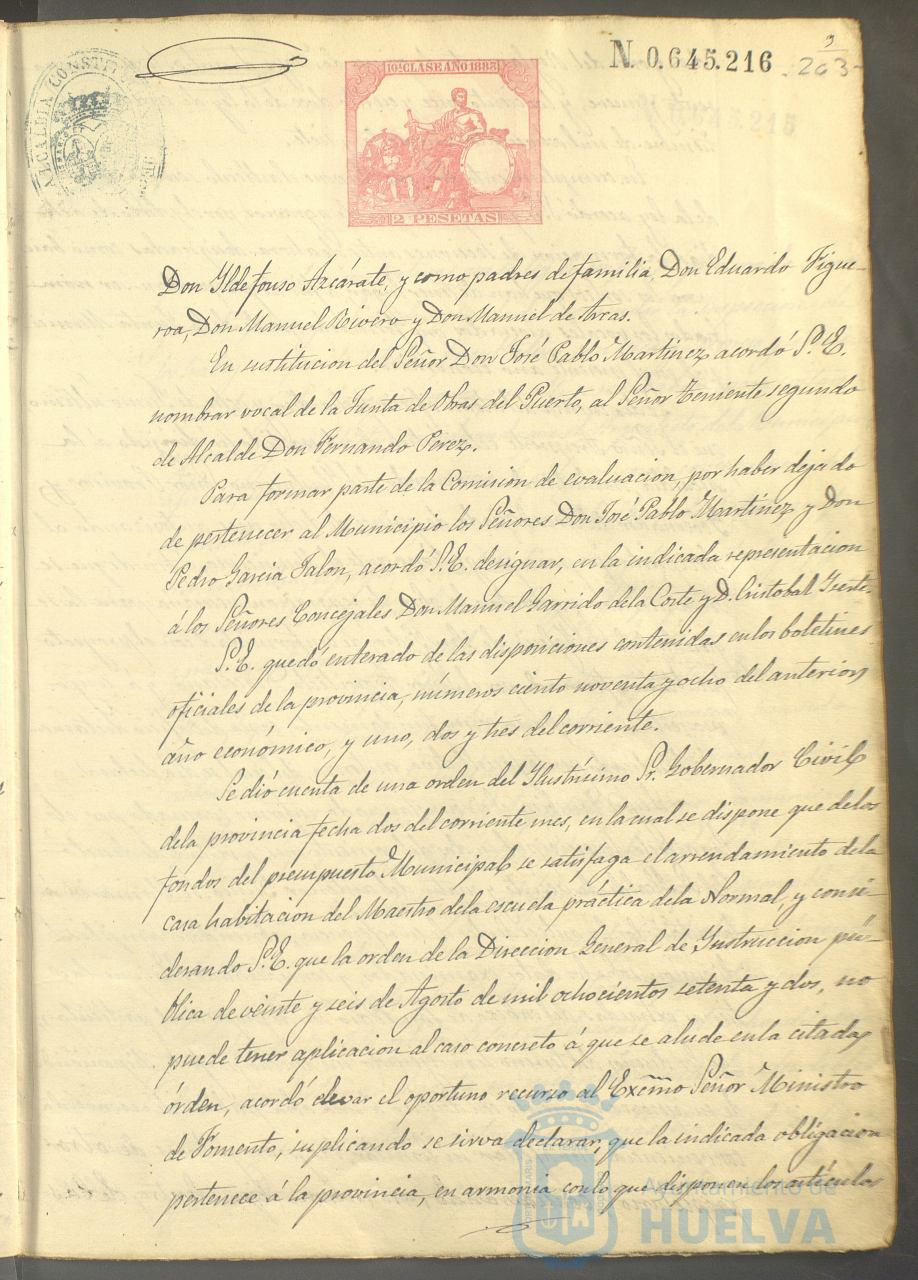 N. 0.645.216
3
203
ALCALDIA CONSTIT
10ª CLASE AÑO 1883
2 PESETAS
Don Yldefonso Azcárate, y como padres de familia Don Eduardo Figue-
roa, Don Manuel Rivero y Don Manuel de Arcas.
En sustitucion del Señor Don José Pablo Martinez acordó S.E.
nombrar vocal de la Junta de Obras del Puerto, al Señor Teniente segundo
de Alcalde Don Fernando Perez.
Para formar parte de la Comision de evaluacion, por haber dejado
de pertenecer al Municipio los Señores Don José Pablo Martinez y Don
Pedro Garcia Jalon, acordó S.E. designar, en la indicada representacion
á los Señores Concejales Don Manuel Garrido de la Corte y D. Cristobal
S.E. quedó enterado de las disposiciones contenidas en los boletines
oficiales de la provincia, números ciento noventa y ocho del anterior
año económico, y uno, dos y tres del corriente.
Se dió cuenta de una orden del Ilustrísimo Sr. Gobernador Civil
de la provincia fecha dos del corriente mes, en la cual se dispone que de los
fondos del presupuesto Municipal se satisfaga el arrendamiento de la
casa habitacion del Maestro de la escuela práctica de la Normal, y consi-
derando S.E. que la orden de la Direccion General de Ynstruccion pú-
blica de veinte y seis de Agosto de mil ochocientos setenta y dos, no
puede tener aplicacion al caso concreto á que se alude en la citada
órden, acordó elevar el oportuno recurso al Excmo Señor Ministro
de Fomento, suplicando se sirva declarar, que la indicada obligacion
pertenece á la provincia, en armonia con lo que disponen los artículos
Ayuntamiento de
HUELVA